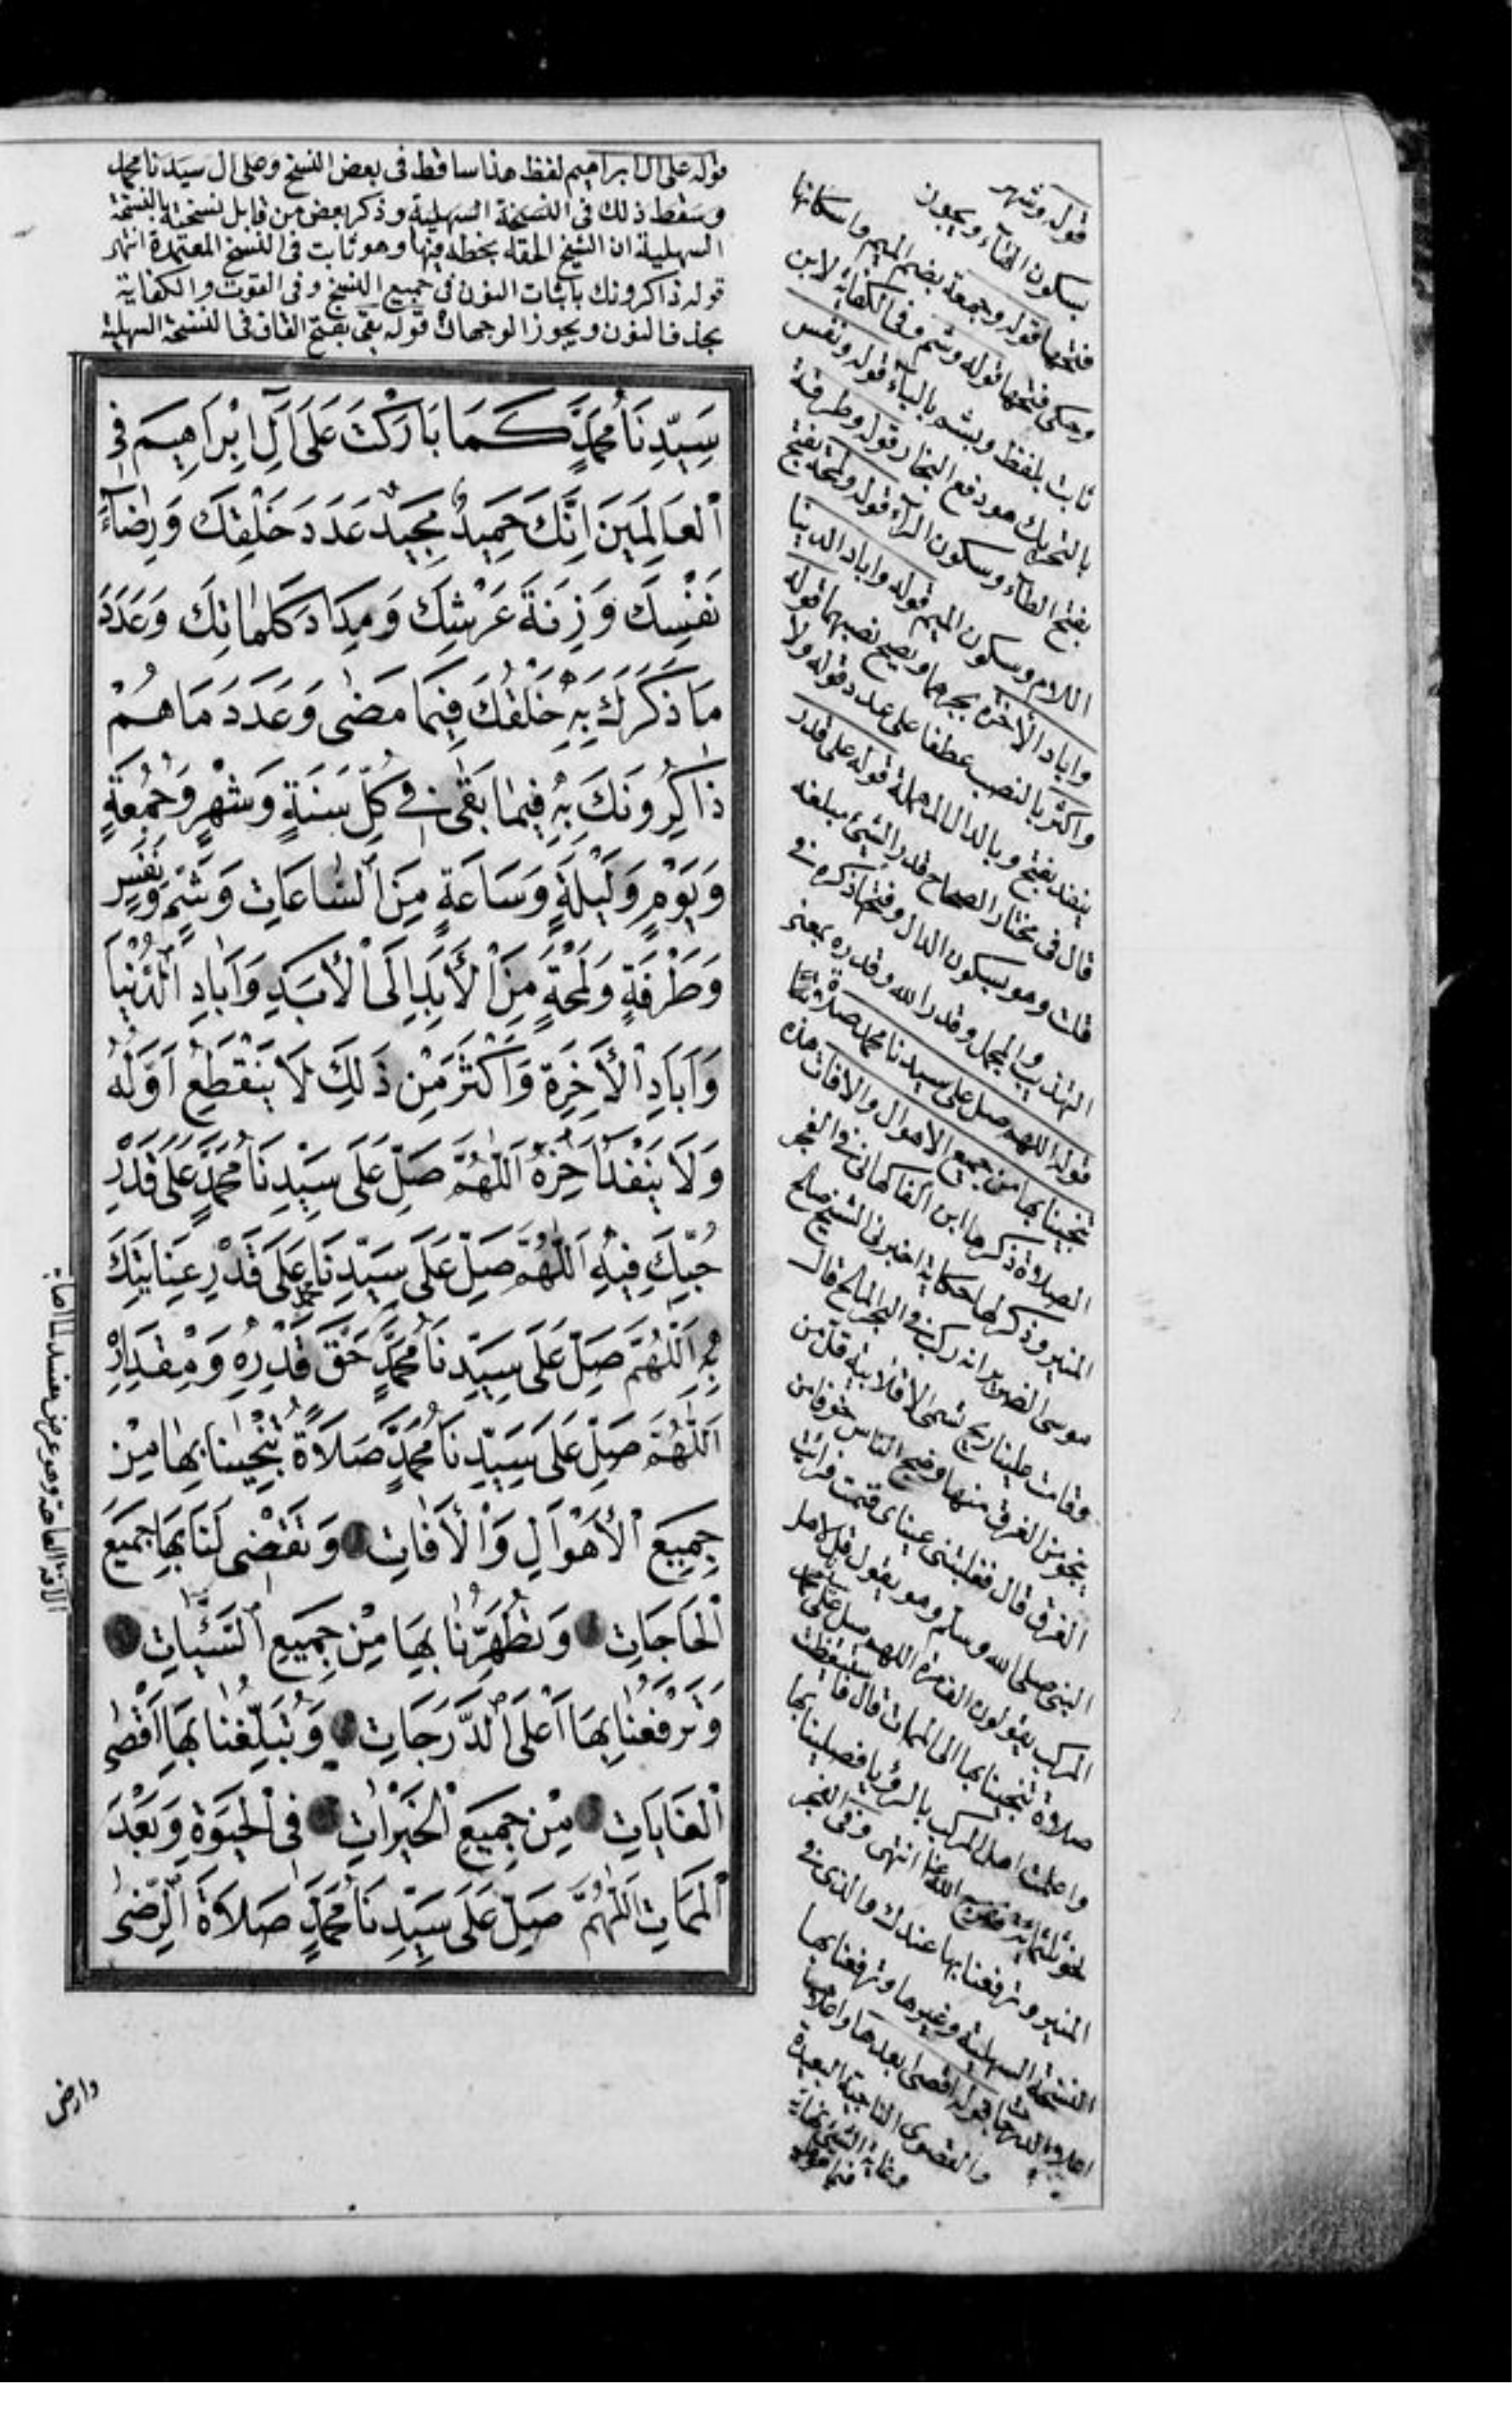 قوله على ال ابراهيم لفظ هذا ساقط فى بعض النسخ وصلى ال سيدنا محمد
وسقط ذلك فى النسخة السهلية وذكر بعض من قابل نسخته بالنسخة
السهلية ان الشيخ الحقه بخطه فيها وهو ثابت فى النسخ المعتمدة انتهى
قوله ذاكرونك باثبات النون فى جميع النسخ وفى القوت والكفاية
بحذف النون ويجوز الوجهان قوله بقى بفتح القاف فى النسخة السهلية
سَيِّدِنَا مُحَمَّدٍ كَمَا بَارَكْتَ عَلَى آلِ اِبْرَاهِيمَ فِى
الْعَالَمِينَ اِنَّكَ حَمِيدٌ مَجِيدٌ عَدَدَ خَلْقِكَ وَرِضَآءَ
نَفْسِكَ وَزِنَةَ عَرْشِكَ وَمِدَادَ كَلِمَاتِكَ وَعَدَدَ
مَا ذَكَرَكَ بِهِ خَلْقُكَ فِيمَا مَضٰى وَعَدَدَ مَا هُمْ
ذَاكِرُونَكَ بِهِ فِيمَا بَقٰى فِى كُلِّ سَنَةٍ وَشَهْرٍ وَجُمُعَةٍ
وَيَوْمٍ وَلَيْلَةٍ وَسَاعَةٍ مِنَ السَّاعَاتِ وَشَمٍّ وَنَفَسٍ
وَطَرْفَةٍ وَلَمْحَةٍ مِنَ الْأَبَدِ اِلَى الْأَبَدِ وَآبَادِ الدُّنْيَا
وَآبَادِ الْأٰخِرَةِ وَاَكْثَرَ مِنْ ذٰلِكَ لَا يَنْقَطِعُ اَوَّلُهُ
وَلَا يَنْفَدُ اٰخِرُهُ اَللّٰهُمَّ صَلِّ عَلَى سَيِّدِنَا مُحَمَّدٍ عَلَى قَدْرِ
حُبِّكَ فِيهِ اَللّٰهُمَّ صَلِّ عَلَى سَيِّدِنَا محمد عَلَى قَدْرِ عِنَايَتِكَ
بِهِ اَللّٰهُمَّ صَلِّ عَلَى سَيِّدِنَا مُحَمَّدٍ حَقَّ قَدْرِهِ وَمِقْدَارِهِ
اَللّٰهُمَّ صَلِّ عَلَى سَيِّدِنَا مُحَمَّدٍ صَلَاةً تُنْجِينَا بِهَا مِنْ
جَمِيعِ الْأَهْوَالِ وَالْأٰفَاتِ وَتَقْضِى لَنَا بِهَا جَمِيعَ
الْحَاجَاتِ وَتُطَهِّرُنَا بِهَا مِنْ جَمِيعِ السَّيِّئَاتِ
وَتَرْفَعُنَا بِهَا اَعْلَى الدَّرَجَاتِ وَتُبَلِّغُنَا بِهَا اَقْصَى
الْغَايَاتِ مِنْ جَمِيعِ الْخَيْرَاتِ فِى الْحَيٰوةِ وَبَعْدَ
الْمَمَاتِ اَللّٰهُمَّ صَلِّ عَلَى سَيِّدِنَا مُحَمَّدٍ صَلَاةَ الرِّضٰى
قوله وشهر
بسكون الهاء ويجوز
فتحها قوله وجمعة بضم الميم واسكانها
وحكى فتحها قوله وشم وفى الكفاية لابن
ثابت بلفظ وبشم بالباء قوله ونفس
بالتحريك هو دفع البخار قوله وطرفة
بفتح الطاء وسكون الراء قوله ولمحة بفتح
اللام وسكون الميم قوله واباد الدنيا
واباد الآخرة بجرهما ويصح نصبهما قوله
واكثر بالنصب عطفا على عدد قوله ولا
ينفد بفتح وبالدال المهملة قوله على قدر
قال فى مختار الصحاح قدر الشىء مبلغه
قلت وهو بسكون الدال وفتحها ذكره فى
التهذيب والمجمل وقدر الله وقدره بمعنى
قوله اللهم صل على سيدنا محمد صلاة
تنجينا بها من جميع الاهوال والافات هذه
الصلاة ذكرها ابن الفاكهانى فى الفجر
المنير وذكر لها حكاية اخبرنى الشيخ صالح
موسى الضرير انه ركب فى البحر المالح قال
وقامت علينا ريح تسمى الاقلابية قل من
ينجو من الغرق منها وضج الناس خوفا من
الغرق قال فغلبتنى عيناى فنمت فرايت
النبى صلى الله وسلم وهو يقول قل لاهل
المركب يقولون الف مرة اللهم صل على محمد
صلاة تنجينا بها الى الممات قال فاستيقظت
واعلمت اهل المركب بالرؤيا فصلينا بها
نحو ثلثمائة ففرج الله عنا انتهى وفى الفجر
المنير وترفعنا بها عندك والذى فى
النسخة السهلية وغيرها وترفعنا بها
قوله اقصى ابعدها واعلاها
والقصوى الناحية البعيدة
وغاية الشىء نهايته
وارض